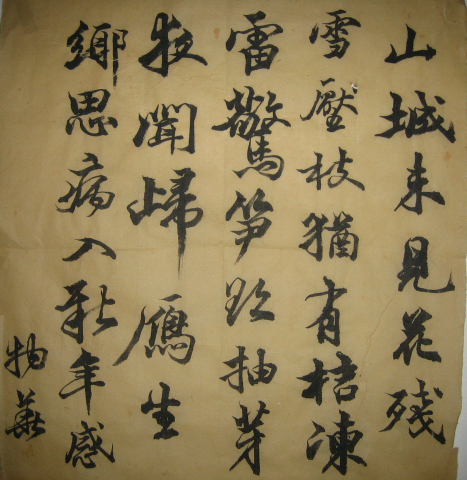 山城未見花殘
雪壓枝猶有桔凍
雷驚笋欲抽芽
夜聞歸鴈生
鄉思病入新年感
物華